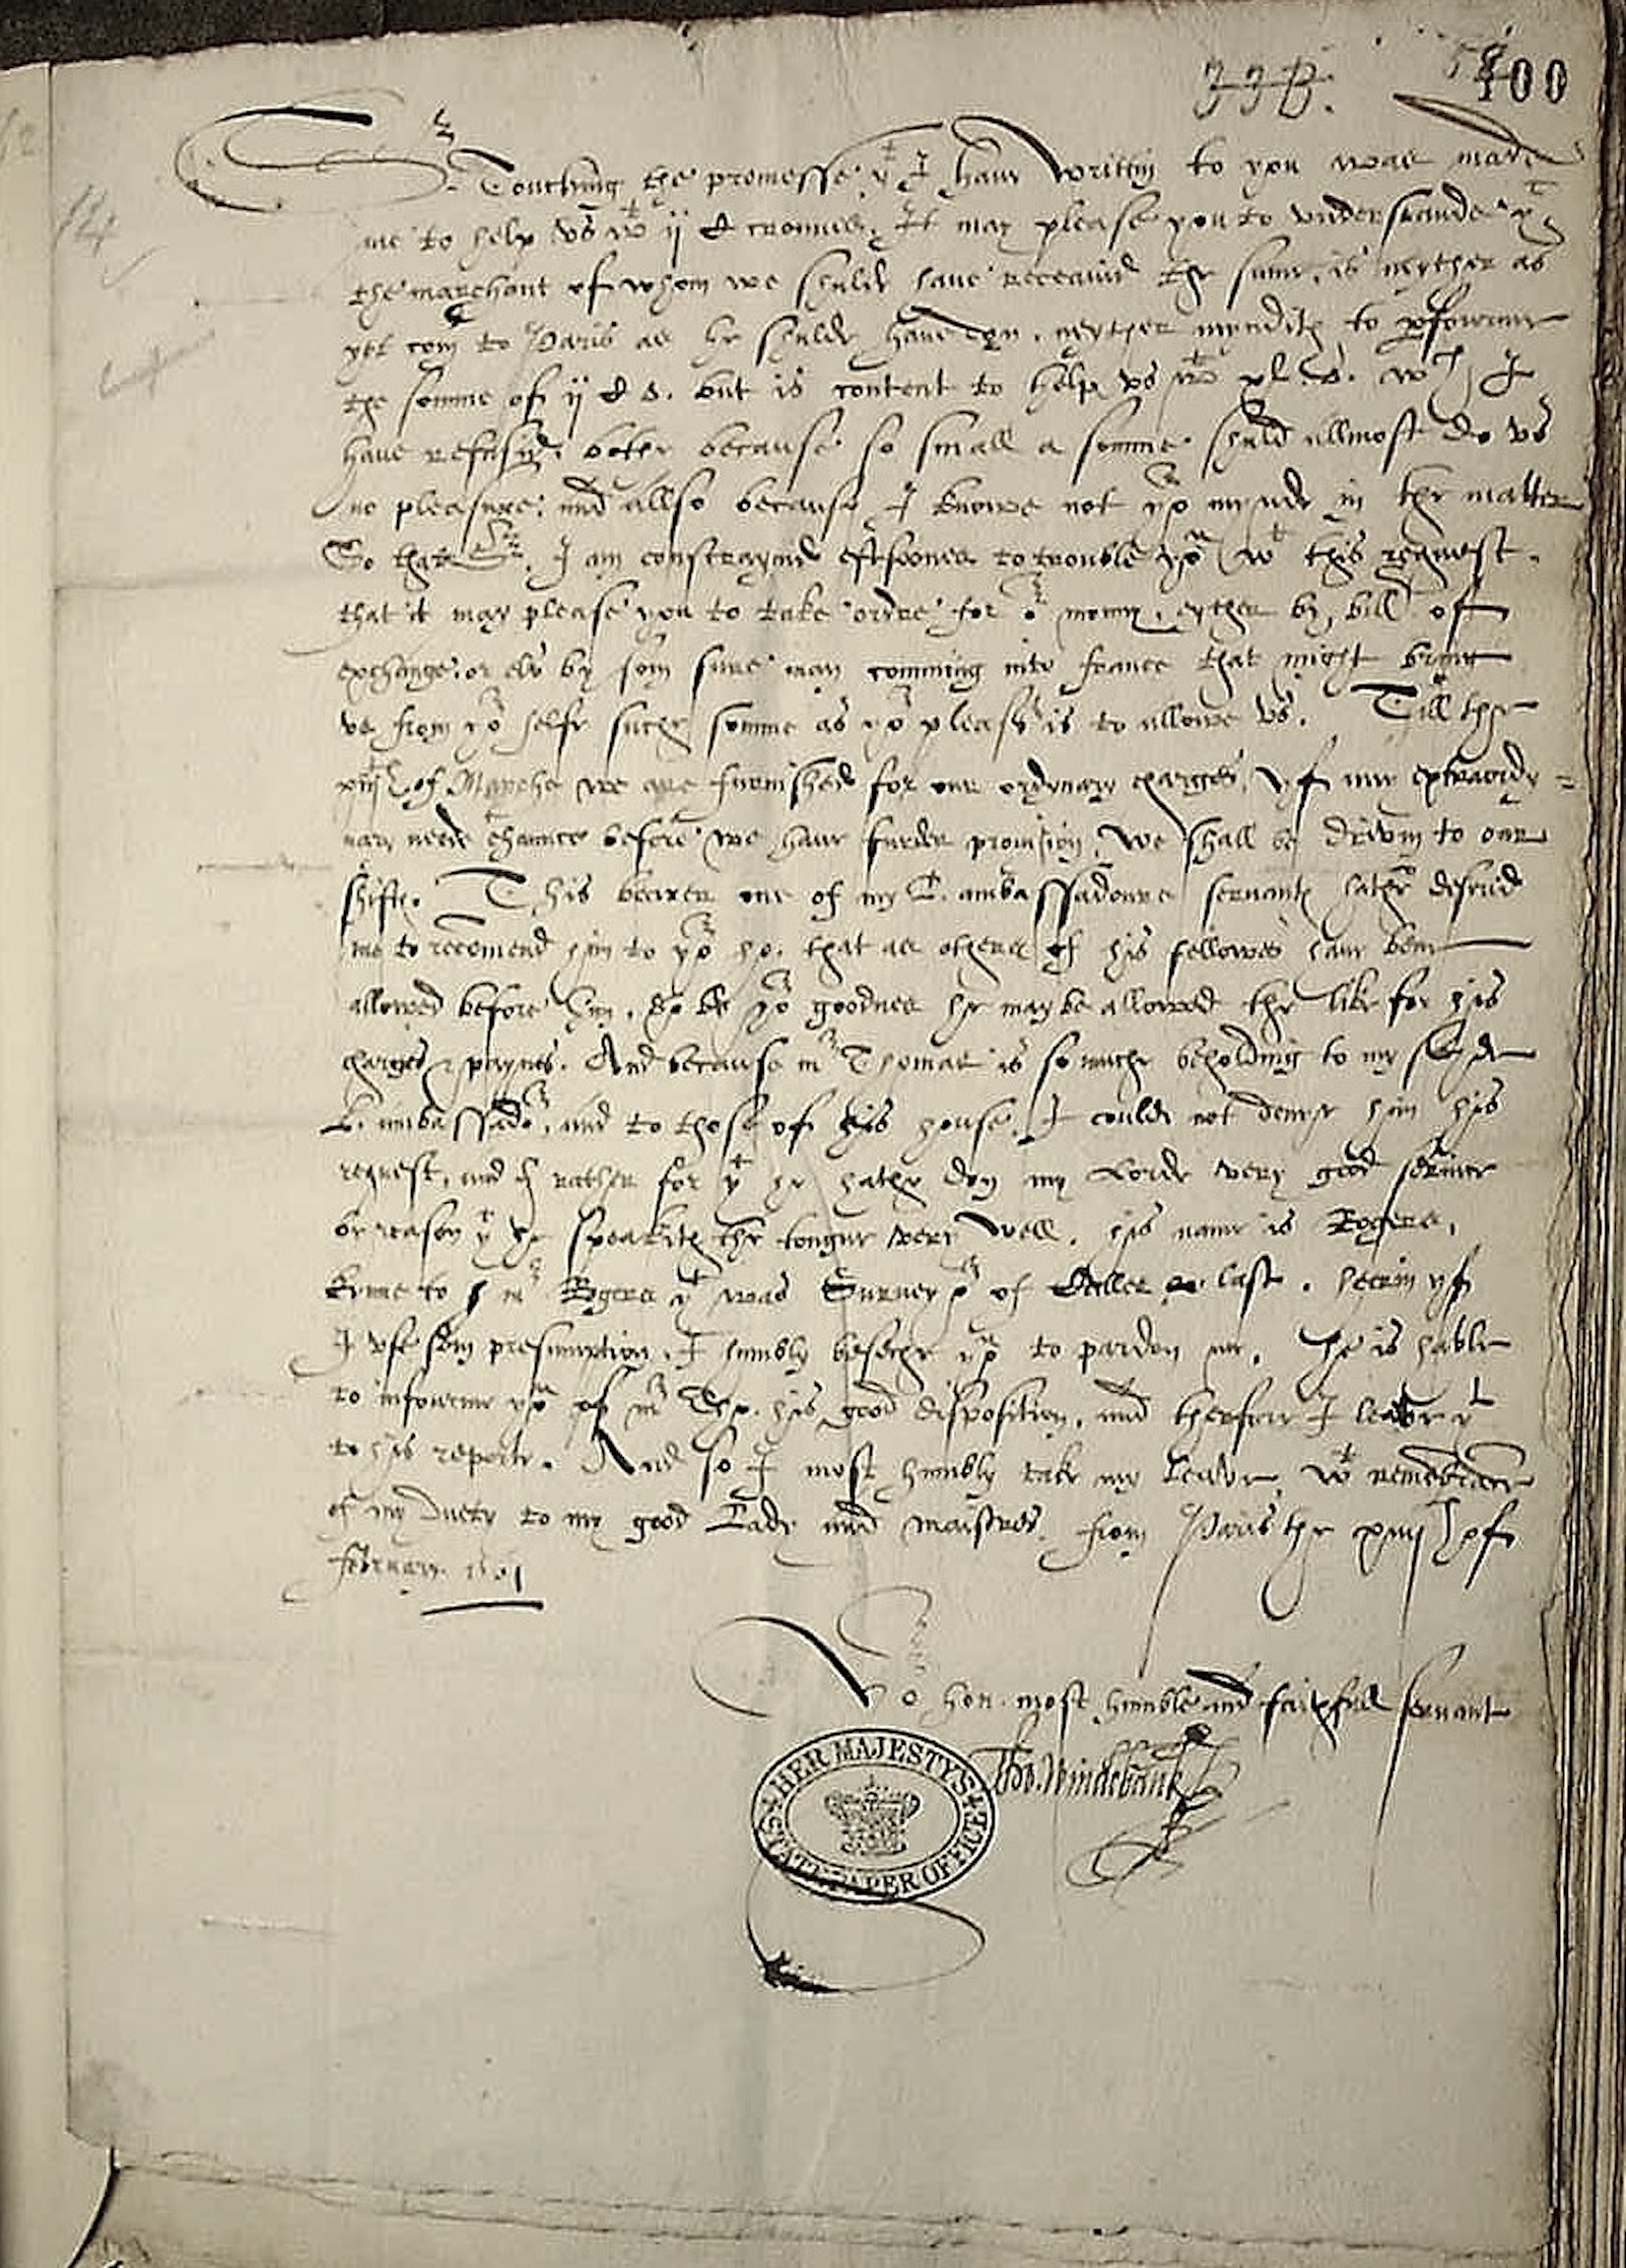 100
Sr. Touching the promesse yt I have writtin to you was made
me to help us wt ij C crounes, It may please you to understande yt
the marchant of whom we shuld have receavid the sume, is neyther as
yet com to Paris as he shulde have don, neyther myndith to perfourme
the somme of ij C v. but is content to help us wt xl v. wch I
have refusyd, bothe because so small a somme shuld allmost do us
no pleasure, and allso because I knowe not yor mynde in the matter
So that Sr. I am constraynid eftsoones to trouble yor wt this request.
that it may please you to take ordre for or monny, eyther by bill of
exchange, or els by som sure man comming into france that might bring
us from yor selfe suche somme as yor pleasr is to allowe us. Till the
xiiijth of Marche we are furnished for our ordynary charges, yf any extraordy=
nary nede chaunce before we have furder provision, we shall be drivin to our
shiftes. This bearer one of my L. ambassadours servantes hathe desirid
me to recomend him to yor ho. that as others of his fellowes have bene
allowed before him, so by yor goodnes he may be allowed the like for his
charges & paynes. And because mr Thomas is so muche beholding to my
L. ambassador, and to those of his house, I coulde not denye him his
request, and ye rather for yt he hathe don my Lorde very good service
by reason yt he speakith the tongue very well. his name is Rogers,
kynne to mr Rogers yt was Surveyor of last. Herein yf
I use som presumption, I humbly beseche yor to pardon me. He is hable
to infourme yor of mr Tho. his good disposition, and therfore I leave yt
to his reporte. And so I most humbly take my leave, wt remembrance
of my duety to my good Lady and maistres. from Paris the xiiijth of
february. 1561
Yor hon. most humble and faithfull servant
Tho. Windebank
HER MAJESTY'S STATE PAPER OFFICE